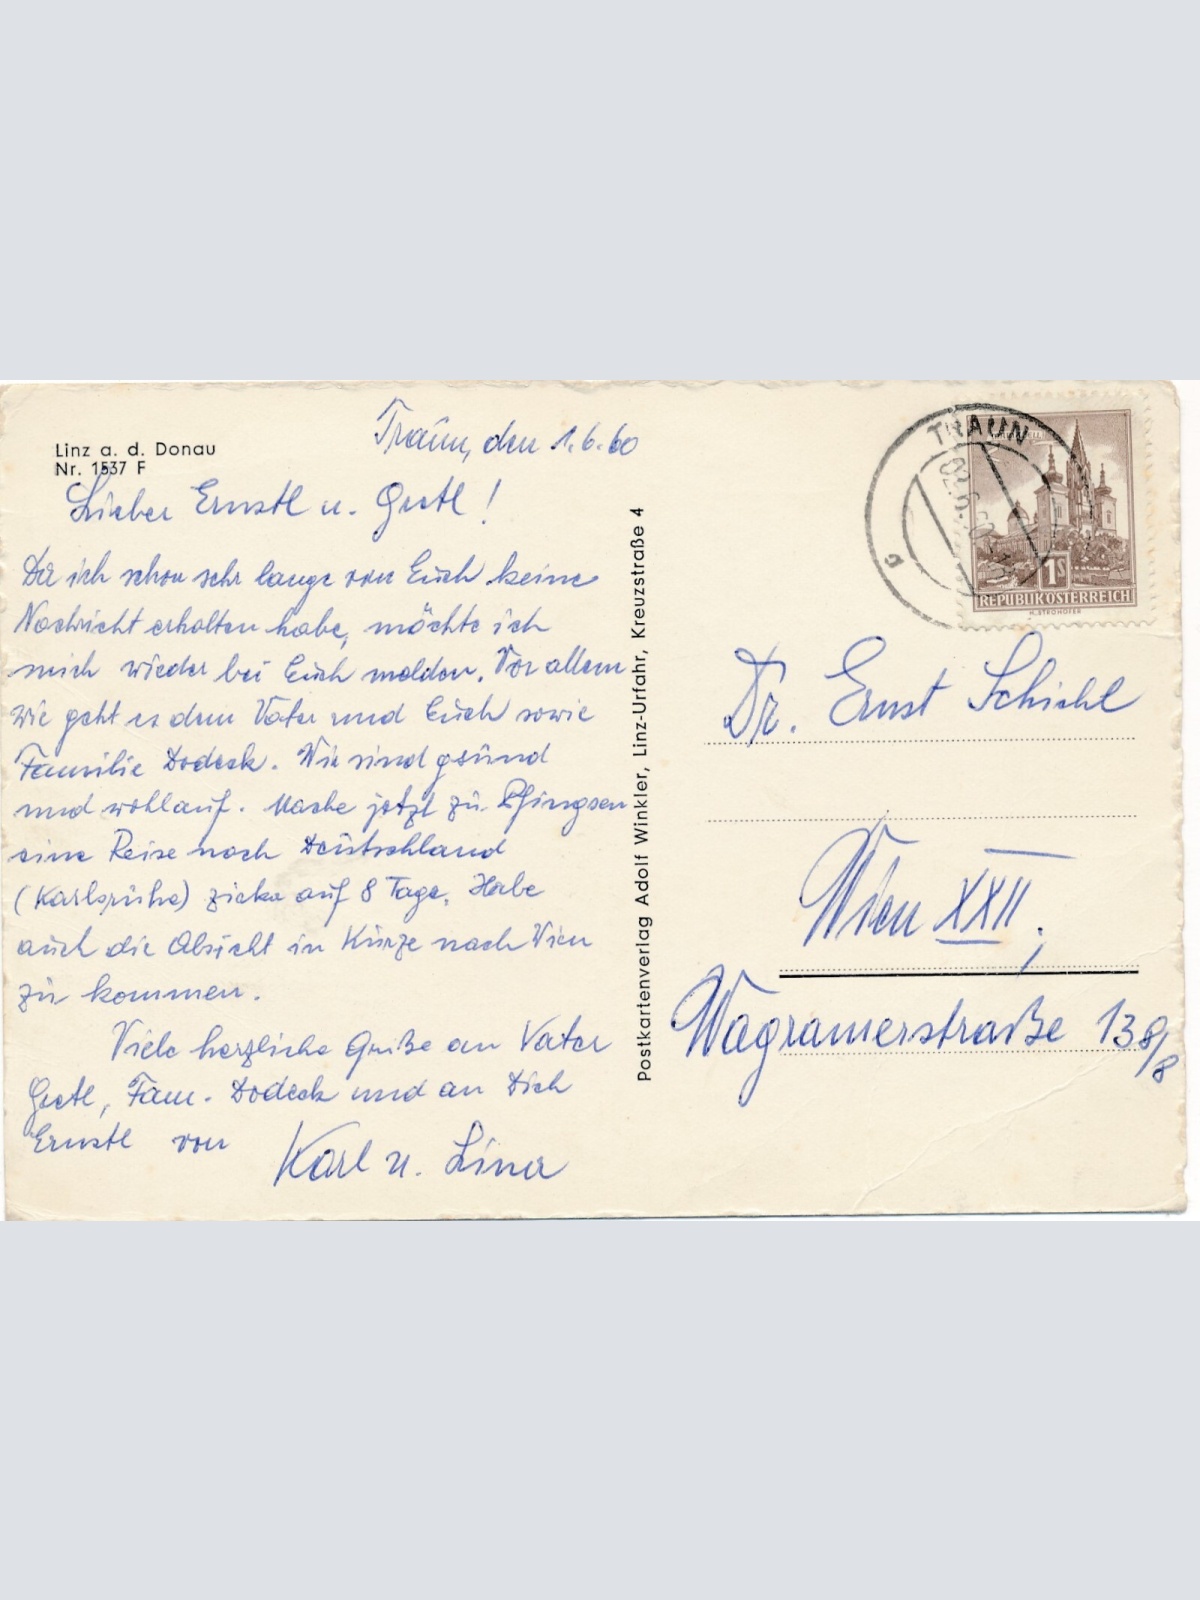 Linz a. d. Donau
Nr. 1537 F
Traun, den 1.6.60
Lieber Ernstl u. Gretl!
Da ich schon sehr lange von Euch keine
Nachricht erhalten habe, möchte ich
mich wieder bei Euch melden. Vor allem
wie geht es dem Vater und Euch sowie
Familie Dodeck. Wir sind gesund
und wohlauf. Mache jetzt zu Pfingsen
eine Reise nach Deutschland
(Karlsruhe) zirka auf 8 Tage. Habe
auch die Absicht in Kürze nach Wien
zu kommen.
Viele herzliche Grüße an Vater
Gretl, Fam. Dodeck und an Dich
Ernstl von
Karl u. Lina
Postkartenverlag Adolf Winkler, Linz-Urfahr, Kreuzstraße 4
TRAUN
02.6.60
a
1S
REPUBLIK ÖSTERREICH
H. STROHOFER
Dr. Ernst Schichl
Wien XXII,
Wagramerstraße 138/8